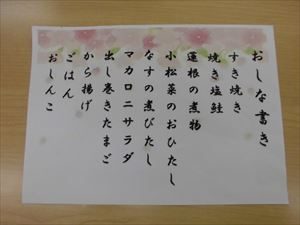 おしな書き
すき焼き
焼き塩鮭
蓮根の煮物
小松菜のおひたし
なすの煮びたし
マカロニサラダ
出し巻きたまご
から揚げ
ごはん
おしんこ